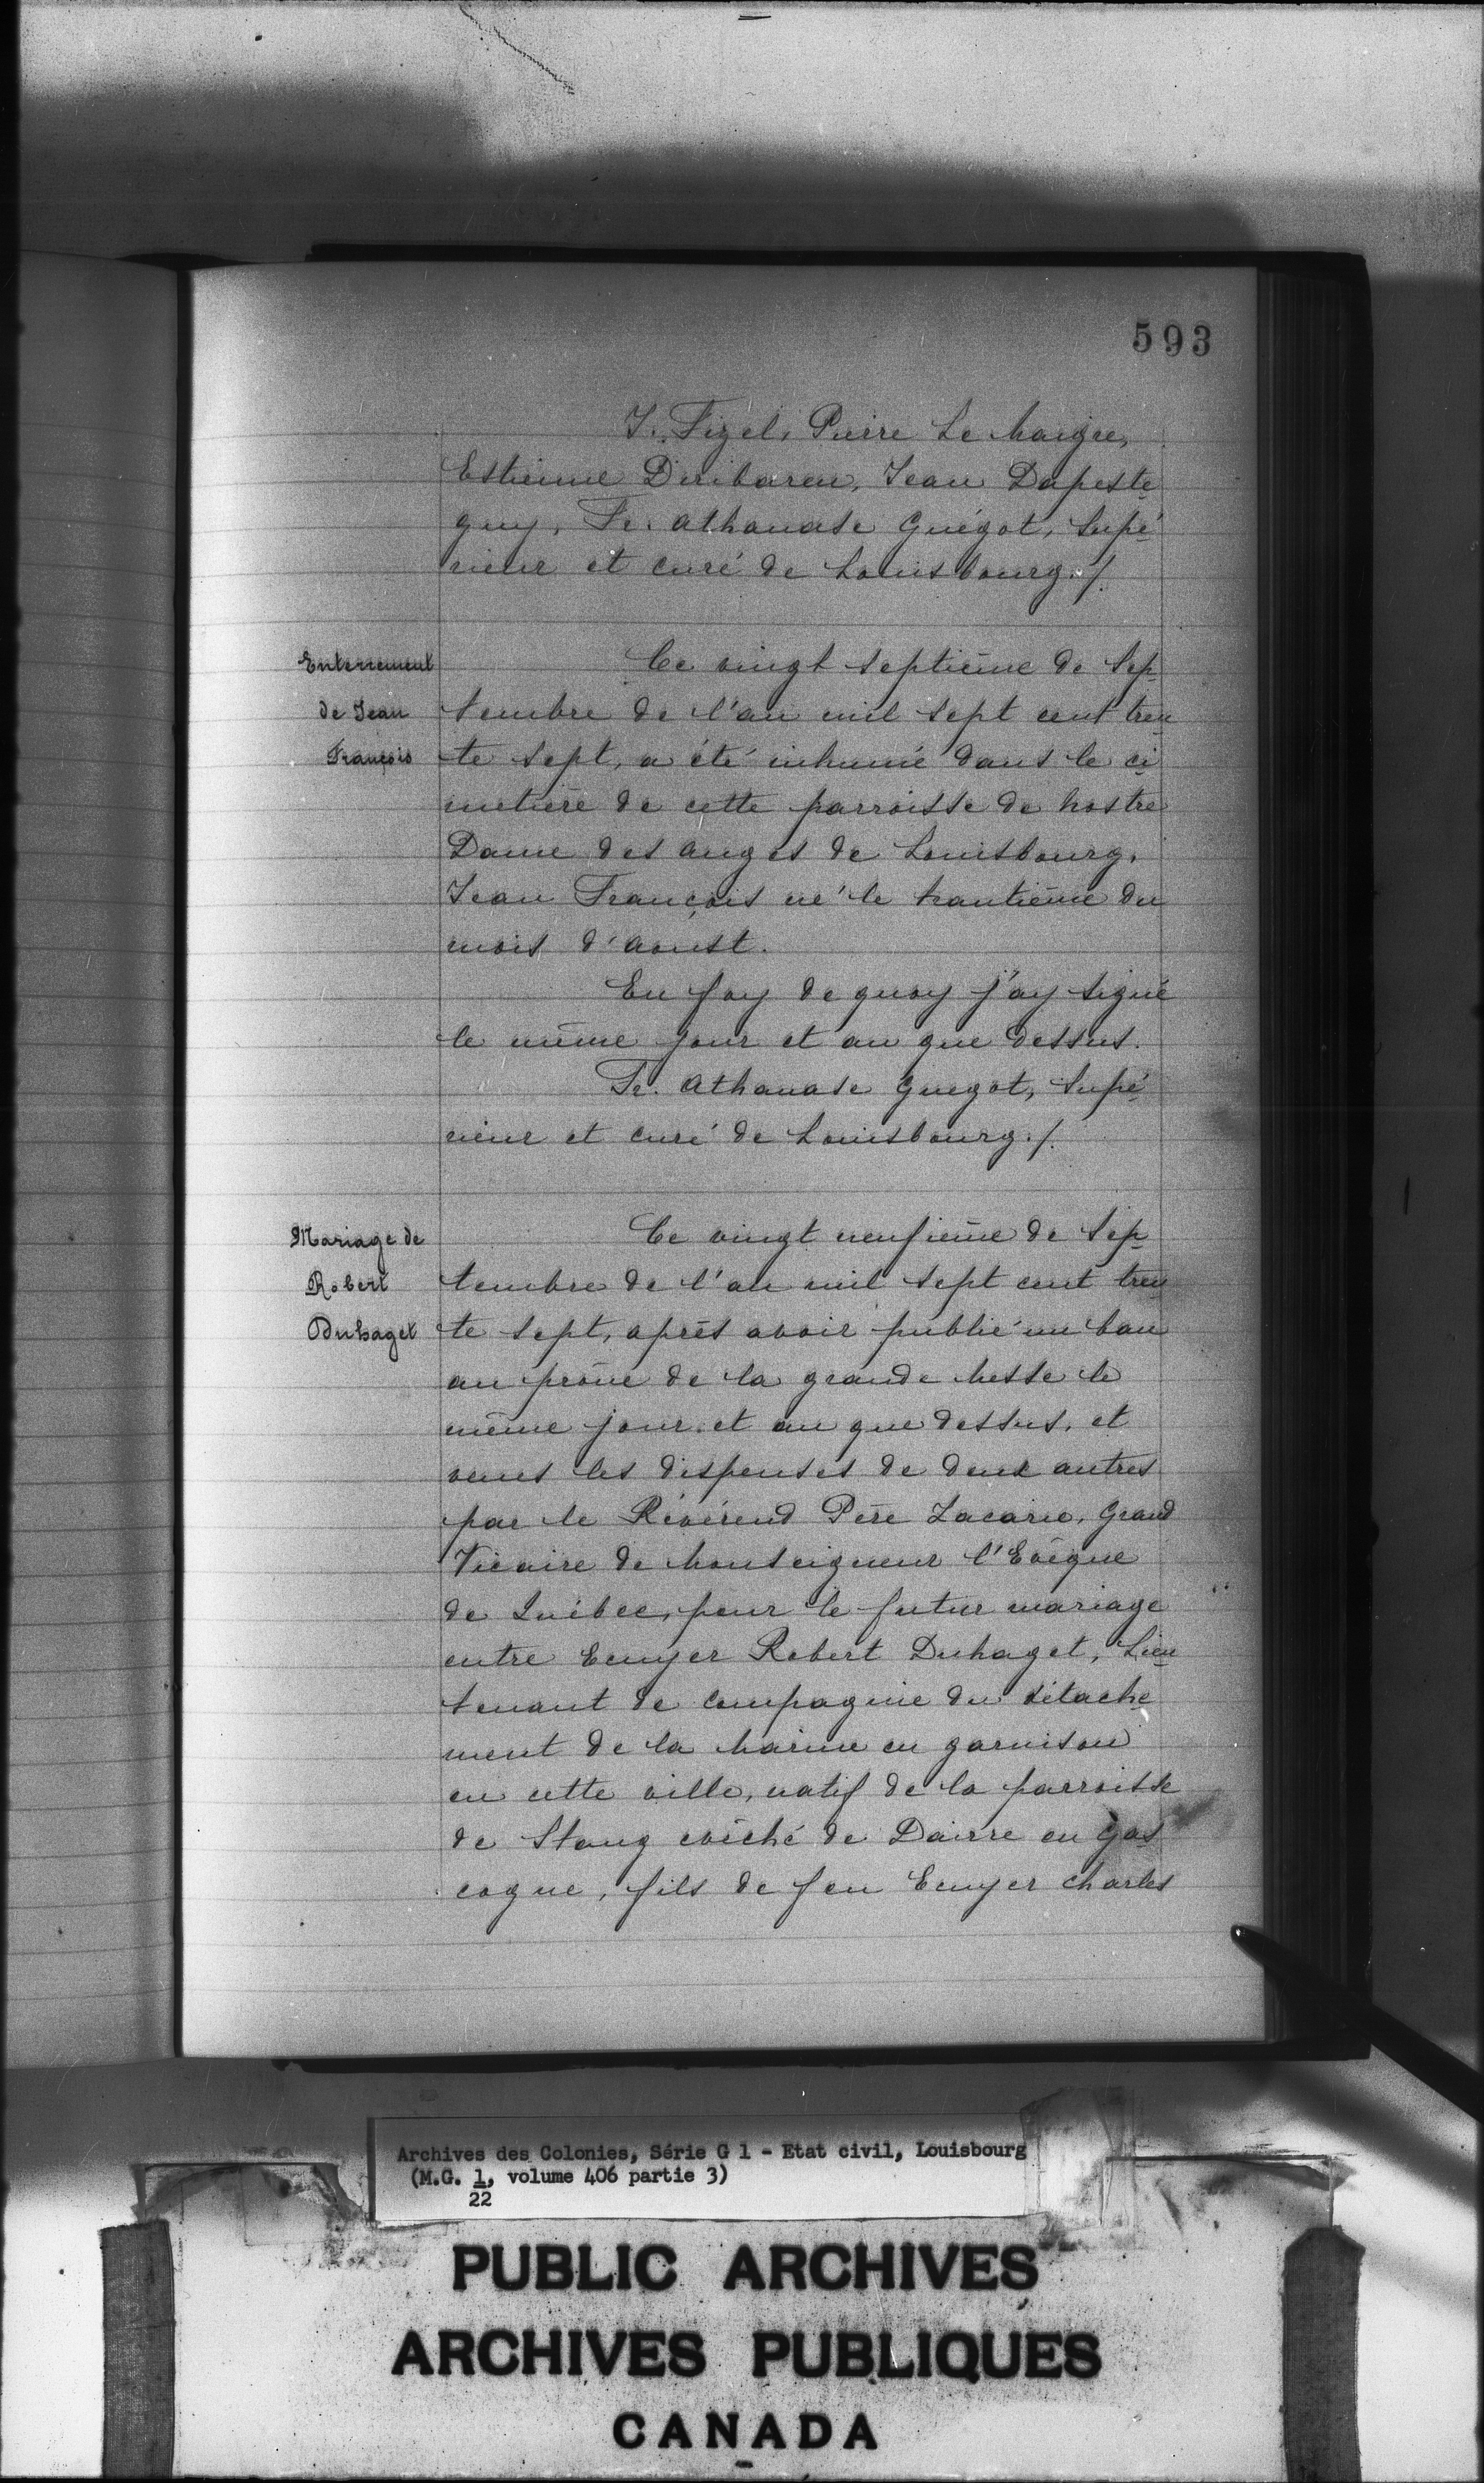 593
J. Fizel, Pierre Le Maigre,
Estienne Diribaren, Jean Dapeste
guy, Fr. Athanase Guégot, Supé
rieur et curé de Louisbourg./.
Enterrement
de Jean
François
Ce vingt septième de Sep
tembre de l'an mil sept cent tren
te sept, a été inhumé dans le ci
metière de cette parroisse de Nostre
Dame des Anges de Louisbourg,
Jean François né le trantième du
mois d'Aoust.
En foy de quoy j'ay signé
le même jour et an que dessus.
Fr. Athanase Guegot, Supé
rieur et curé de Louisbourg./.
Mariage de
Robert
Duhaget
Ce vingt neufième de Sep
tembre de l'an mil sept cent tren
te sept, après avoir publié un ban
au prône de la grande Messe le
même jour et an que dessus, et
veues les dispenses de deux autres
par le Révérend Père Zacarie, Grand
Vicaire de Monseigneur l'Evêque
de Québec, pour le futur mariage
entre Ecuyer Robert Duhaget, Lieu
tenant de Compagnie du détache
ment de la Marine en garnison
en cette ville, natif de la parroisse
de Stang evêché de Dairre en Gas
cogne, fils de feu Ecuyer Charles
Archives des Colonies, Série G 1 - Etat civil, Louisbourg
(M.G. 1, volume 406 partie 3)
22
PUBLIC ARCHIVES
ARCHIVES PUBLIQUES
CANADA